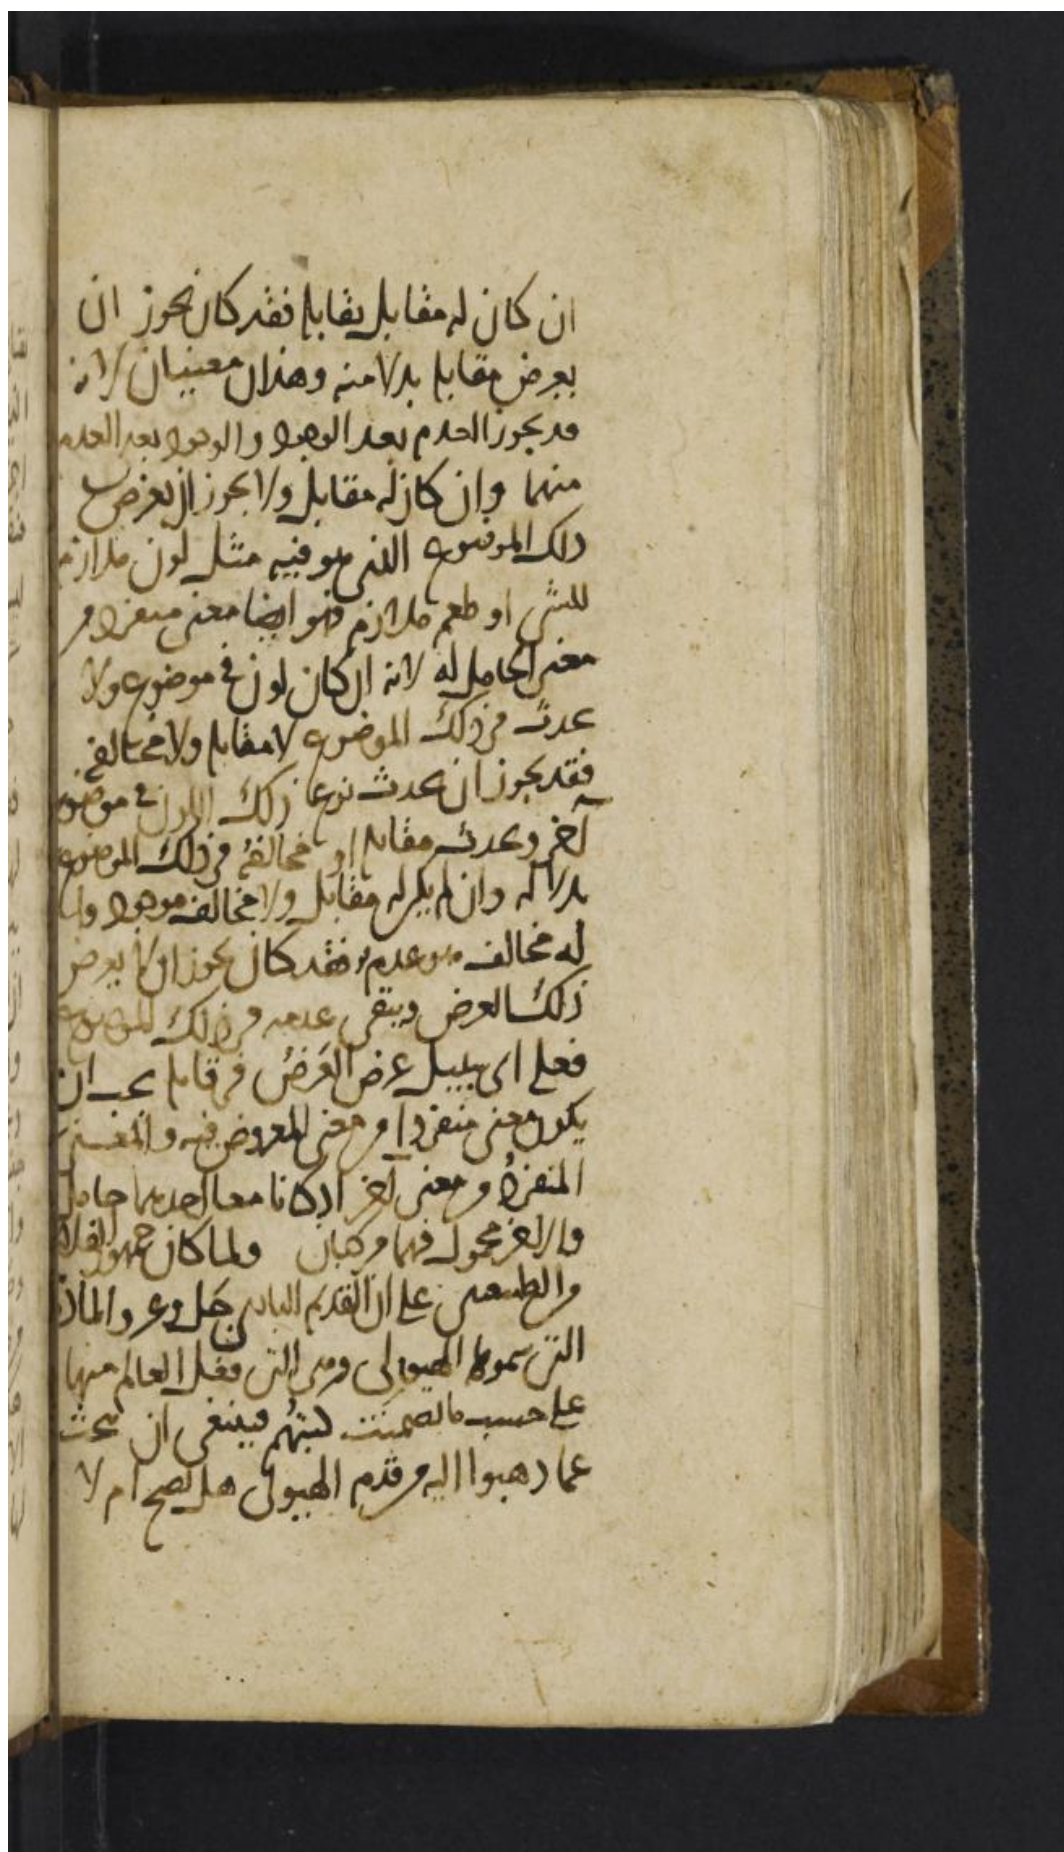 ان كان له مقابل يقابله فقد كان يجوز ان
يعرض مقابله بدلا منه وهذان معنيان لانه
قد يجوز العدم بعد الوجود والوجود بعد العدم
منهما وان كان له مقابل ولا يجوز ان يعرض
ذلك الموضوع الذي هو فيه مثل لون ملازم
للشي او طعم ملازم فهو ايضا معنى منفرد من
معنى الحامل له لانه ان كان لون في موضوع ولا
يحدث في ذلك الموضوع لا مقابله ولا مخالفه
فقد يجوز ان يحدث نوع ذلك اللون في موضوع
آخر ويحدث مقابله او مخالفه في ذلك الموضوع
بدلا له وان لم يكن له مقابل ولا مخالف موجود وانما
له مخالف هو عدم فقد كان يجوز ان لا يعرض
ذلك العرض ويبقى عدمه في ذلك الموضوع
فعلى اى سبيل عرض العَرَضُ في قابله يجب ان
يكون معنى منفردا من معنى المعروض فيه والمعنى
المنفرد من معنى آخر اذ كانا معا احدهما حامل
والاخر محمول فهما مركبان ولما كان جمهور الفلاسفة
والطبيعيين على ان القديم البارى جَل وعز والمادة
التي سموها الهيولى وهي التي فعل العالم منها
على حسب ما تضمنت كتبهُم فينبغي ان نبحث
عما ذهبوا اليه من قدم الهيولى هل يصح ام لا